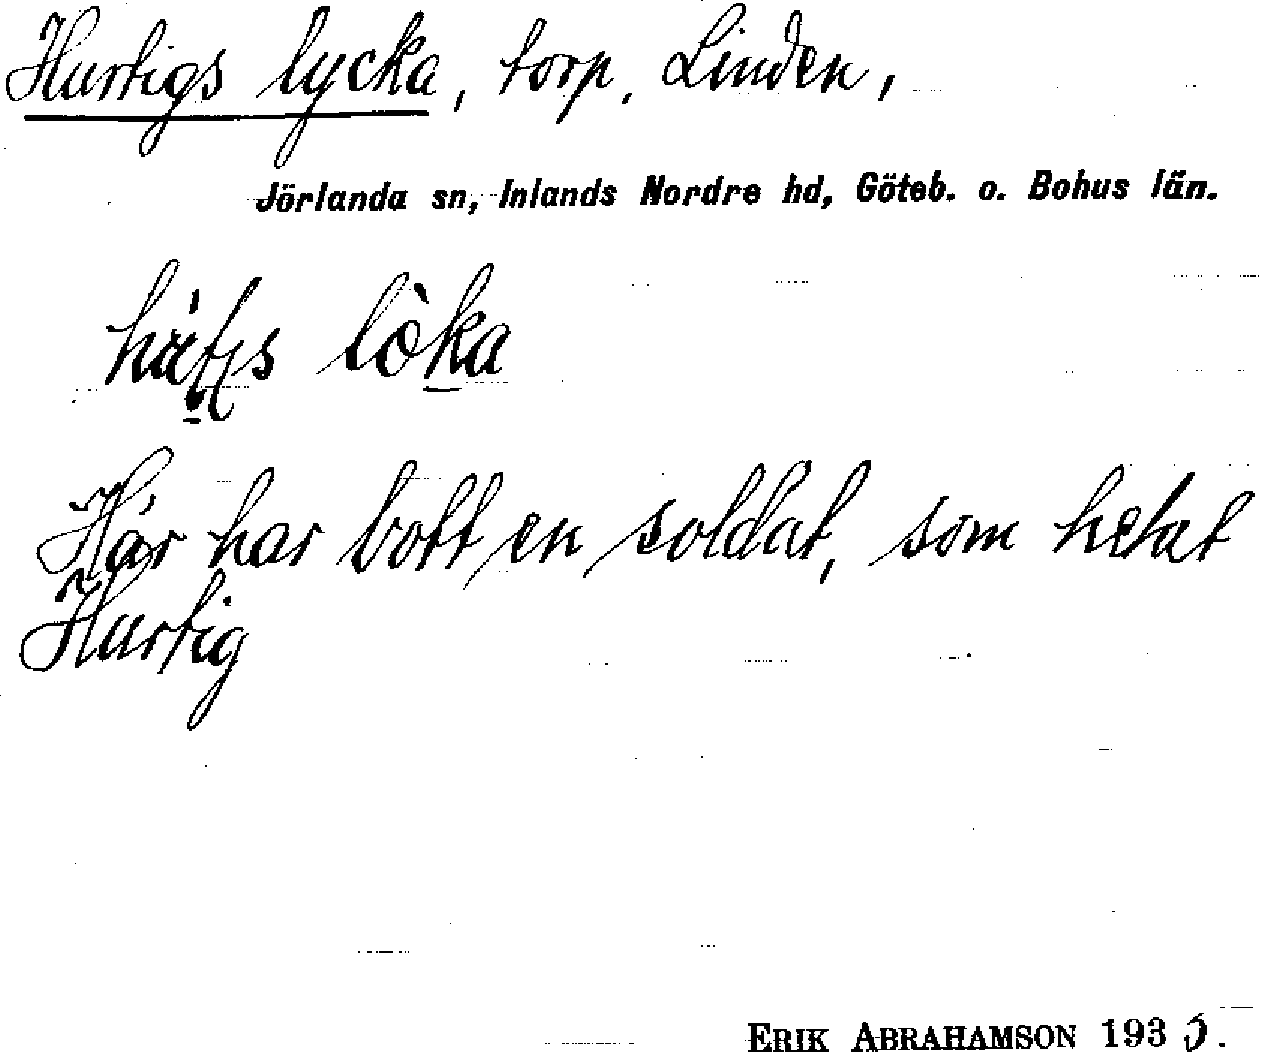 Hurtigs lycka, torp, Linden,
Jörlanda sn, Inlands Nordre hd, Göteb. o. Bohus län.
lòka
Här har bott en soldat, som hetat
Hurtig
ERIK ABRAHAMSON 1935.